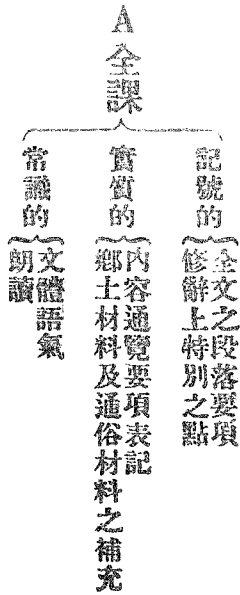 A全課
記號的
全文之段落要項
修辭上特別之點
實質的
內容通覽要項表記
鄉土材料及通俗材料之補充
常識的
文體語氣
朗讀